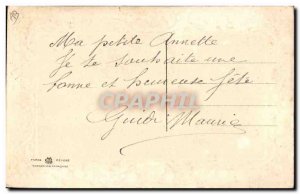 Ma petite Annette
Je te souhaite une
bonne et heureuse fête
Guidi Maurice
CARTOPHILIE
PARIS